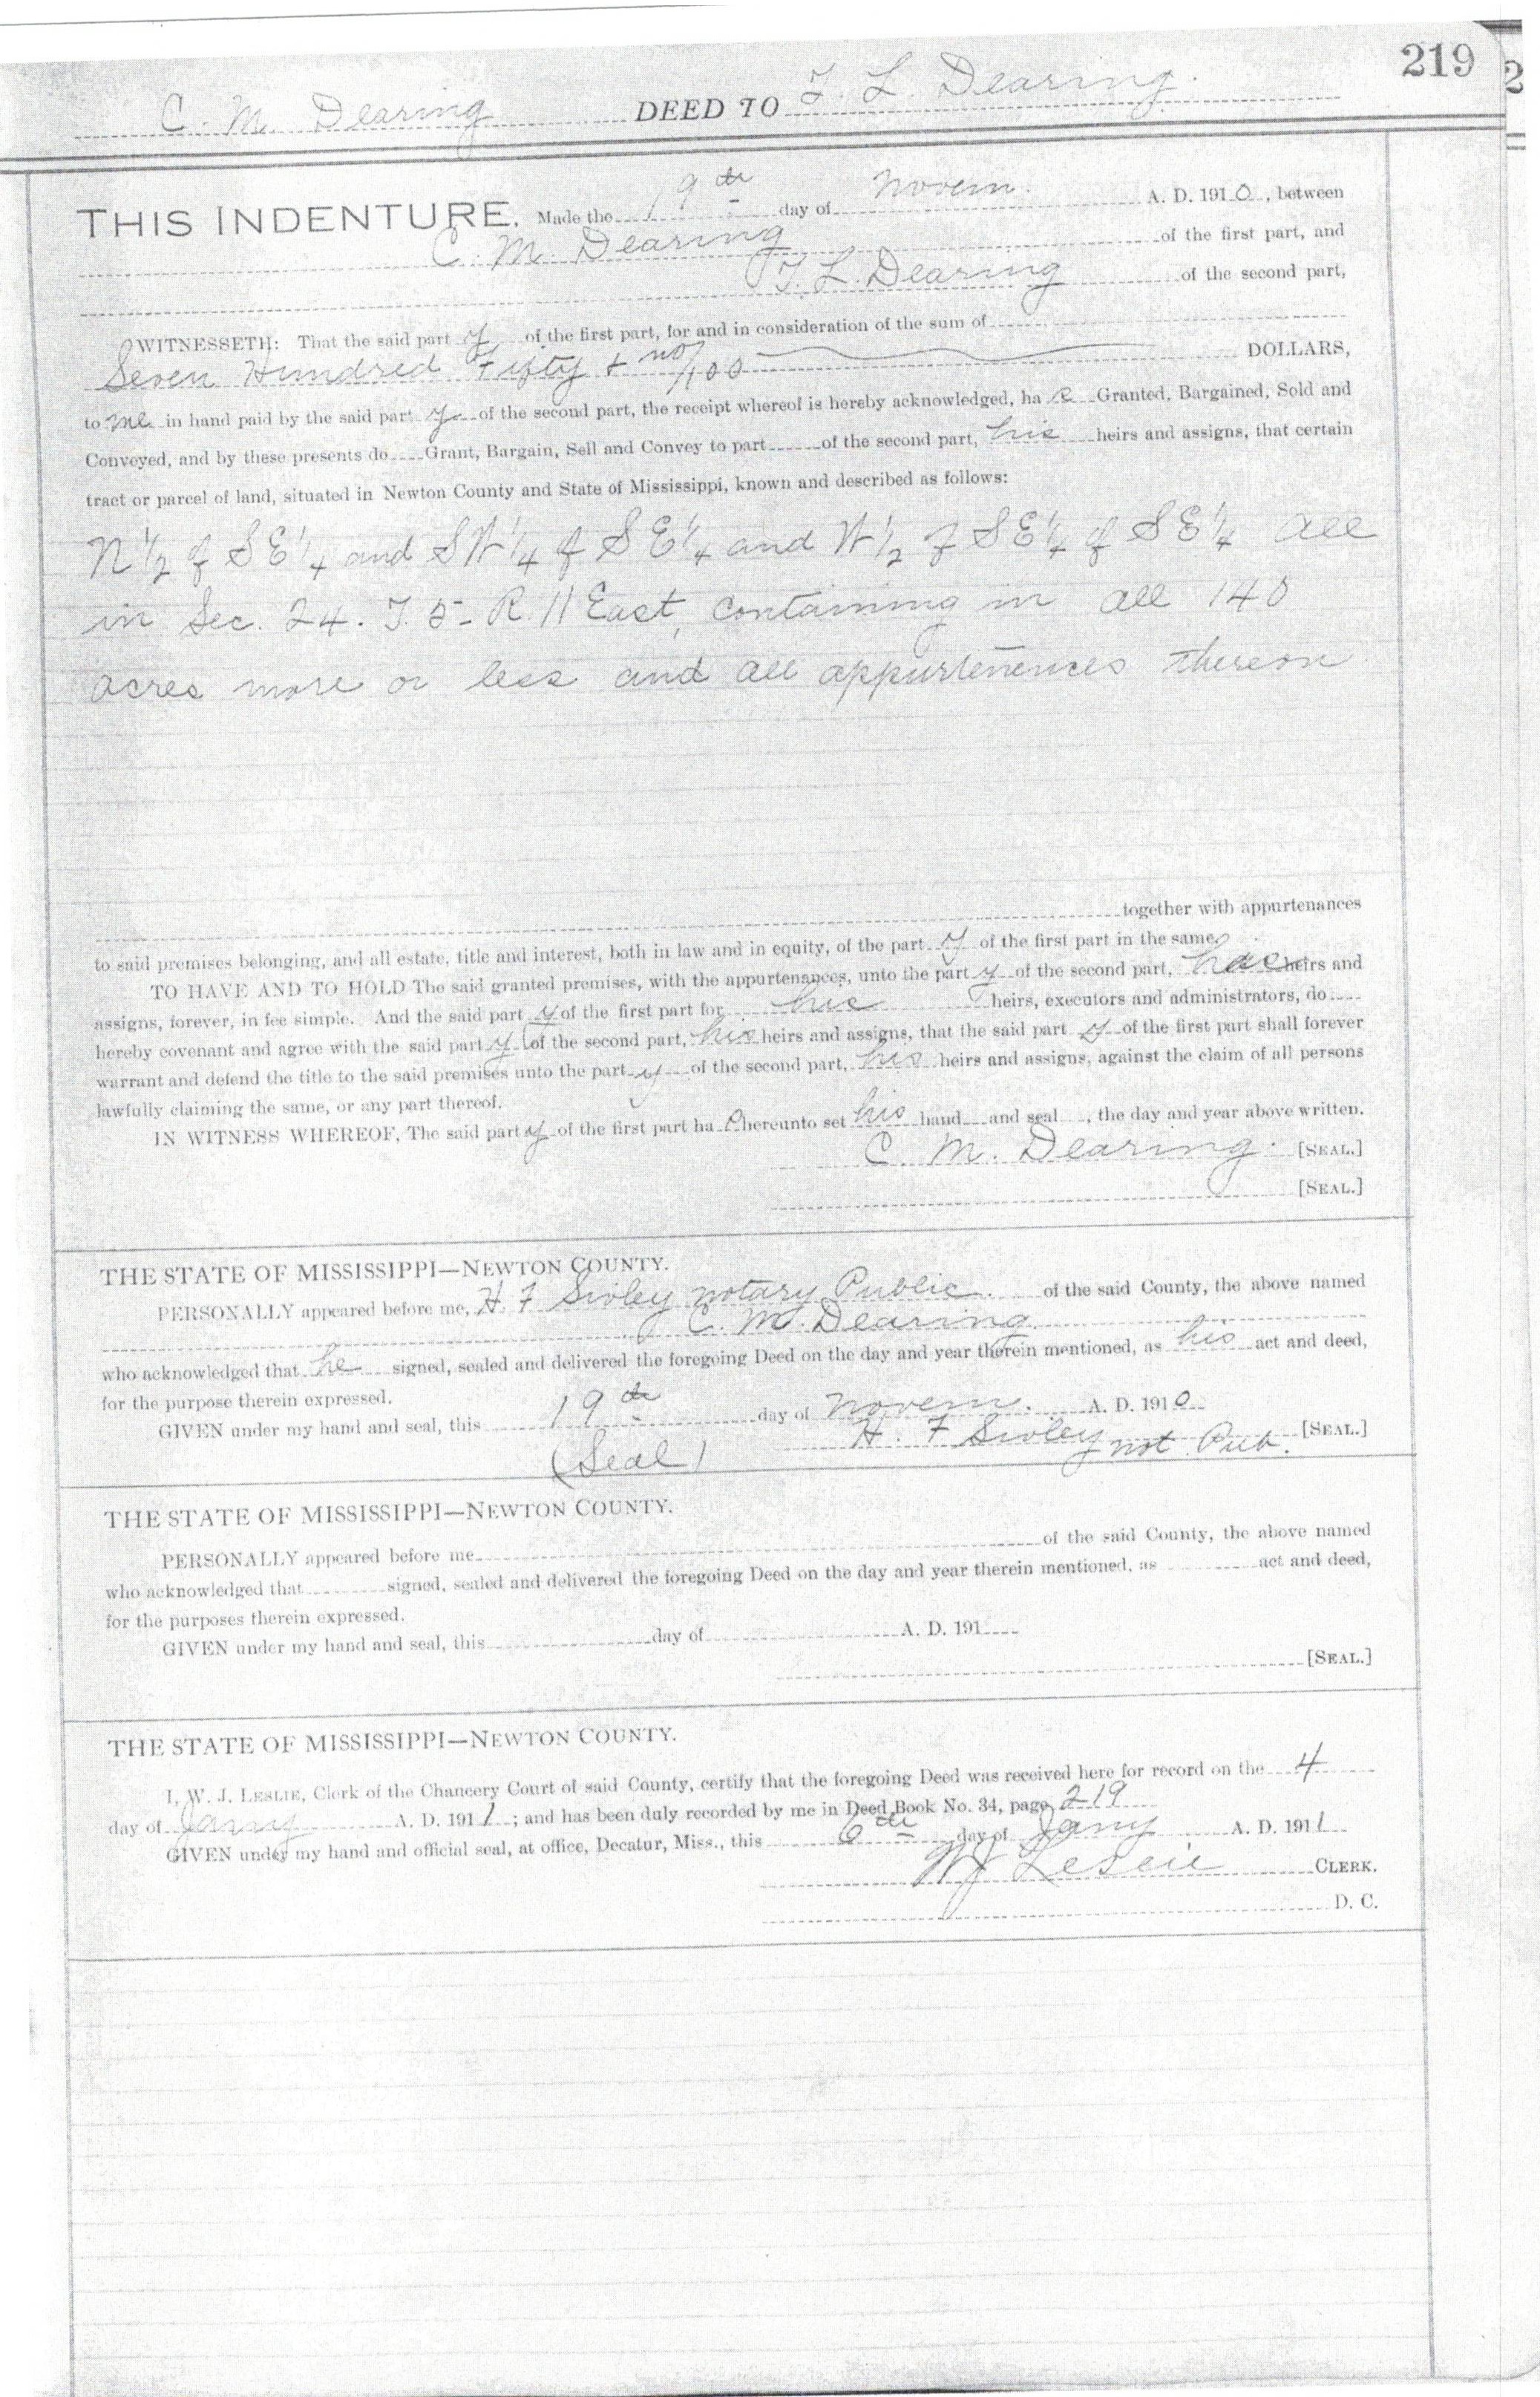 219
C. M. Dearing DEED TO T. L. Dearing.
THIS INDENTURE, Made the 19th day of Novem. A. D. 1910, between
C. M. Dearing of the first part, and
T. L. Dearing of the second part,
WITNESSETH: That the said part y of the first part, for and in consideration of the sum of
Seven Hundred Fifty & no/100 DOLLARS,
to me in hand paid by the said part y of the second part, the receipt whereof is hereby acknowledged, ha s Granted, Bargained, Sold and
Conveyed, and by these presents do Grant, Bargain, Sell and Convey to part of the second part, his heirs and assigns, that certain
tract or parcel of land, situated in Newton County and State of Mississippi, known and described as follows:
N 1/2 of SE 1/4 and SW 1/4 of SE 1/4 and W 1/2 of SE 1/4 of SE 1/4 all
in Sec. 24. T. 5- R. 11 East, containing in all 140
acres more or less and all appurtenences thereon
together with appurtenances
to said premises belonging, and all estate, title and interest, both in law and in equity, of the part y of the first part in the same.
TO HAVE AND TO HOLD The said granted premises, with the appurtenances, unto the part y of the second part, heirs and
assigns, forever, in fee simple. And the said part y of the first part for his heirs, executors and administrators, do
hereby covenant and agree with the said part y of the second part, his heirs and assigns, that the said part y of the first part shall forever
warrant and defend the title to the said premises unto the part y of the second part, his heirs and assigns, against the claim of all persons
lawfully claiming the same, or any part thereof.
IN WITNESS WHEREOF, The said part y of the first part ha hereunto set his hand and seal, the day and year above written.
C. M. Dearing. [SEAL.]
[SEAL.]
THE STATE OF MISSISSIPPI—NEWTON COUNTY.
PERSONALLY appeared before me, H. F Sivley notary Public. of the said County, the above named
C. M. Dearing
who acknowledged that he signed, sealed and delivered the foregoing Deed on the day and year therein mentioned, as his act and deed,
for the purpose therein expressed.
GIVEN under my hand and seal, this 19th day of Novem. A. D. 1910
H. F Sivley not Pub. [SEAL.]
(Seal)
THE STATE OF MISSISSIPPI—NEWTON COUNTY.
PERSONALLY appeared before me of the said County, the above named
who acknowledged that signed, sealed and delivered the foregoing Deed on the day and year therein mentioned, as act and deed,
for the purposes therein expressed.
GIVEN under my hand and seal, this day of A. D. 191
[SEAL.]
THE STATE OF MISSISSIPPI—NEWTON COUNTY.
I, W. J. LESLIE, Clerk of the Chancery Court of said County, certify that the foregoing Deed was received here for record on the 4
day of Jany A. D. 1911; and has been duly recorded by me in Deed Book No. 34, page 219
GIVEN under my hand and official seal, at office, Decatur, Miss., this 6th day of Jany A. D. 1911
WJ Leslie CLERK.
D. C.